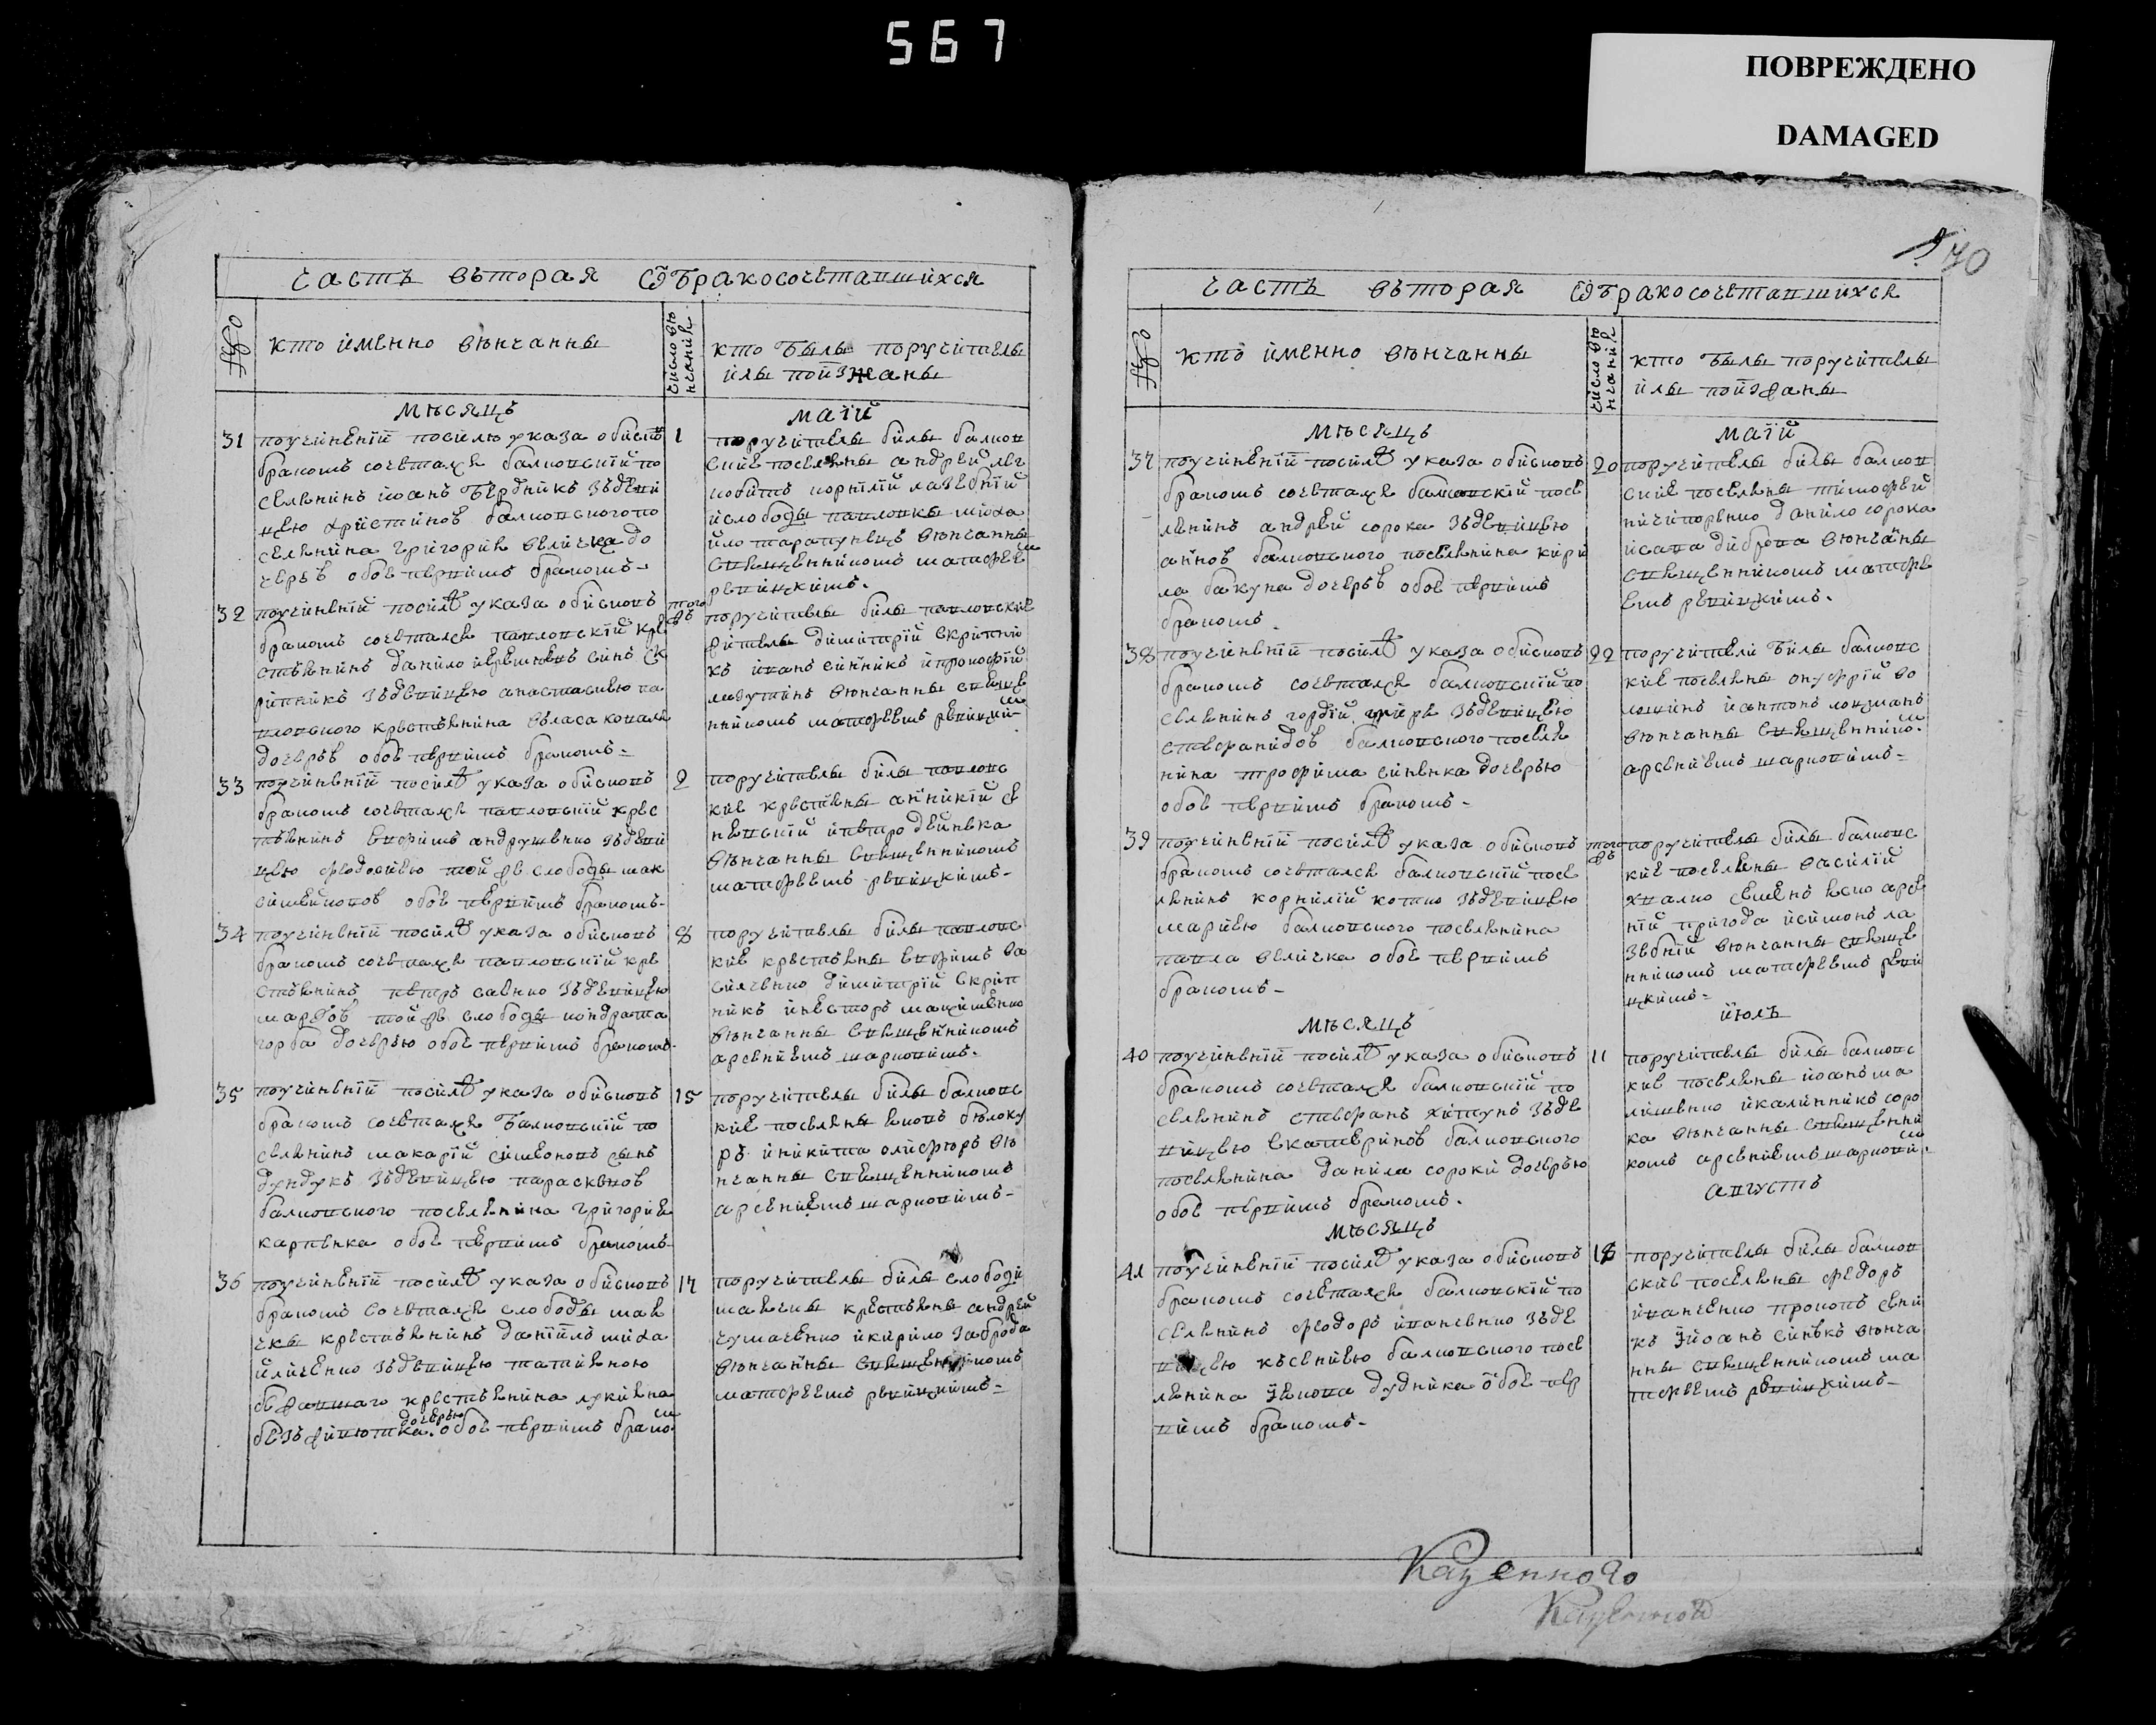 567
ПОВРЕЖДЕНО
DAMAGED
70
часть вьторая Ѡбракосочетавшихся
кто именно венчаны
число ве
нчания
кто былы поручителы
илы поизжаны
месяць
маій
31
починеній посилю указа обиско
бракомъ сочетался балковскій по
селянинъ иоанъ бердникъ зьдеви
цею христиною балковского по
селянина григория величка до
черею обое первимъ бракомъ
1
поручителы билы балков
скіе поселяны андрей лев
ковить корнілій лазебній
ислободы павловки миха
ило тарапунець венчанны
священникомъ матфеем
ревицкимъ
32
починеній посилѣ указа обисковъ
бракомъ сочетался павловскій кре
стьянинъ данило сынъ ск
рипникъ зьдевицею анастасиею па
вловского крестьянина власа коваля
дочерью обое первимъ бракомъ
того
жъ
поручителы билы павловскіе
жителы димитрій скрипни
къ иванъ синникъ ипрокофій
лазутинъ венчанны свяще
нникомъ матфеемъ ревицким
33
починеній посилѣ указа обисковъ
бракомъ сочетался павловскій крес
тянинъ ефимъ андрущенко зьдеви
цею феодосиею той же слободы мак
симейковой обое первимъ бракомъ
2
поручителы билы павловс
кіе крестяны анникій се
невскій ипетро дейнека
венчанны священникомъ
матфеемъ ревицкимъ
34
починеній посилѣ указа обисковъ
бракомъ сочетался павловскій кре
стянинъ петръ савенко зьдевицею
марфою той же слободы кондрата
горба дочерью обое первимъ бракомъ
8
поручителы билы павловс
кіе крестяны ефимъ ва
силенко димитрій скрип
никъ инесторъ мацишенко
венчанны священникомъ
арсениемъ шарковимъ
35
починеній посилѣ указа обисковъ
бракомъ сочетался балковскій по
селянинъ макарій симеоновъ сынъ
дундукъ зьдевицею парасквою
балковского поселянина григория
карпенка обое первимъ бракомъ
15
поручителы билы балковс
кіе поселяны яковъ белоку
ръ иникита олифиръ ве
нчанны священникомъ
арсениемъ шарковимъ
36
починеній посилѣ указа обисковъ
бракомъ сочетался слободы мая
чкы крестьянинъ даніилъ миха
йличенко зьдевицею татияною
бежавшаго крестьянина лукияна
дочерью
обое первимъ браком
17
поручителы билы слободи
маячкы крестьяны андрей
чумаченко икирило заброда
венчанны священникомъ
матфеемъ ревицкимъ
часть вьторая Ѡбракосочетавшихся
кто именно венчанны
число ве
нчания
кто былы поручителы
илы поизжаны
месяць
маій
37
починеній посилѣ указа обисковъ
бракомъ сочетался балковскій посе
лянинъ андрей сорока зьдевицею
анною балковского поселянина кири
ла бакуна дочерью обое первимъ
бракомъ
20
поручителы билы балков
скіе поселяны тимофей
ничипоренко данило сорока
исава диброва венчаны
священникомъ матфе
емъ ревицкимъ
38
починеній посилѣ указа обисковъ
бракомъ сочетался балковскій по
селянинъ гордій зьдевицею
стефанидою балковского поселя
нина трофима синенка дочерью
обое первимъ бракомъ
22
поручители билы балковс
кіе поселяны онуфрій во
лошинъ иантонъ лоцманъ
венчанны священником
арсениемъ шарковимъ
39
починеній посилѣ указа обисковъ
бракомъ сочетался балковскій посе
лянинъ корнилій котко зьдевицею
мариею балковского поселянина
павла величка обое первимъ
бракомъ
того
жъ
поручителы билы балковс
кіе поселяны василій
семенъ арсе
ній пригода исимонъ ла
зебній венчанны свяще
нникомъ матфеемъ реви
цкимъ
месяць
июль
40
починеній посилѣ указа обисковъ
бракомъ сочетался балковскій по
селянинъ стефанъ хитунъ зьде
вицею екатериною балковского
поселянина данила сороки дочерью
обое первимъ бракомъ
11
поручителы билы балковс
кіе поселяны иоанъ ма
лишенко икалинникъ соро
ка венчанны священни
комъ арсениемъ шаркови
месяць
августъ
41
починеній посилѣ указа обисковъ
бракомъ сочетался балковскій по
селянинъ феодоръ иваненко зьде
вицею ксениею балковского посе
лянина якова дудника обое пер
вимъ бракомъ
18
поручителы билы балков
скіе поселяны федоръ
иваненко прокопъ сени
къ иоанъ синкъ венча
нны священникомъ ма
тфеемъ ревицкимъ
Казенного